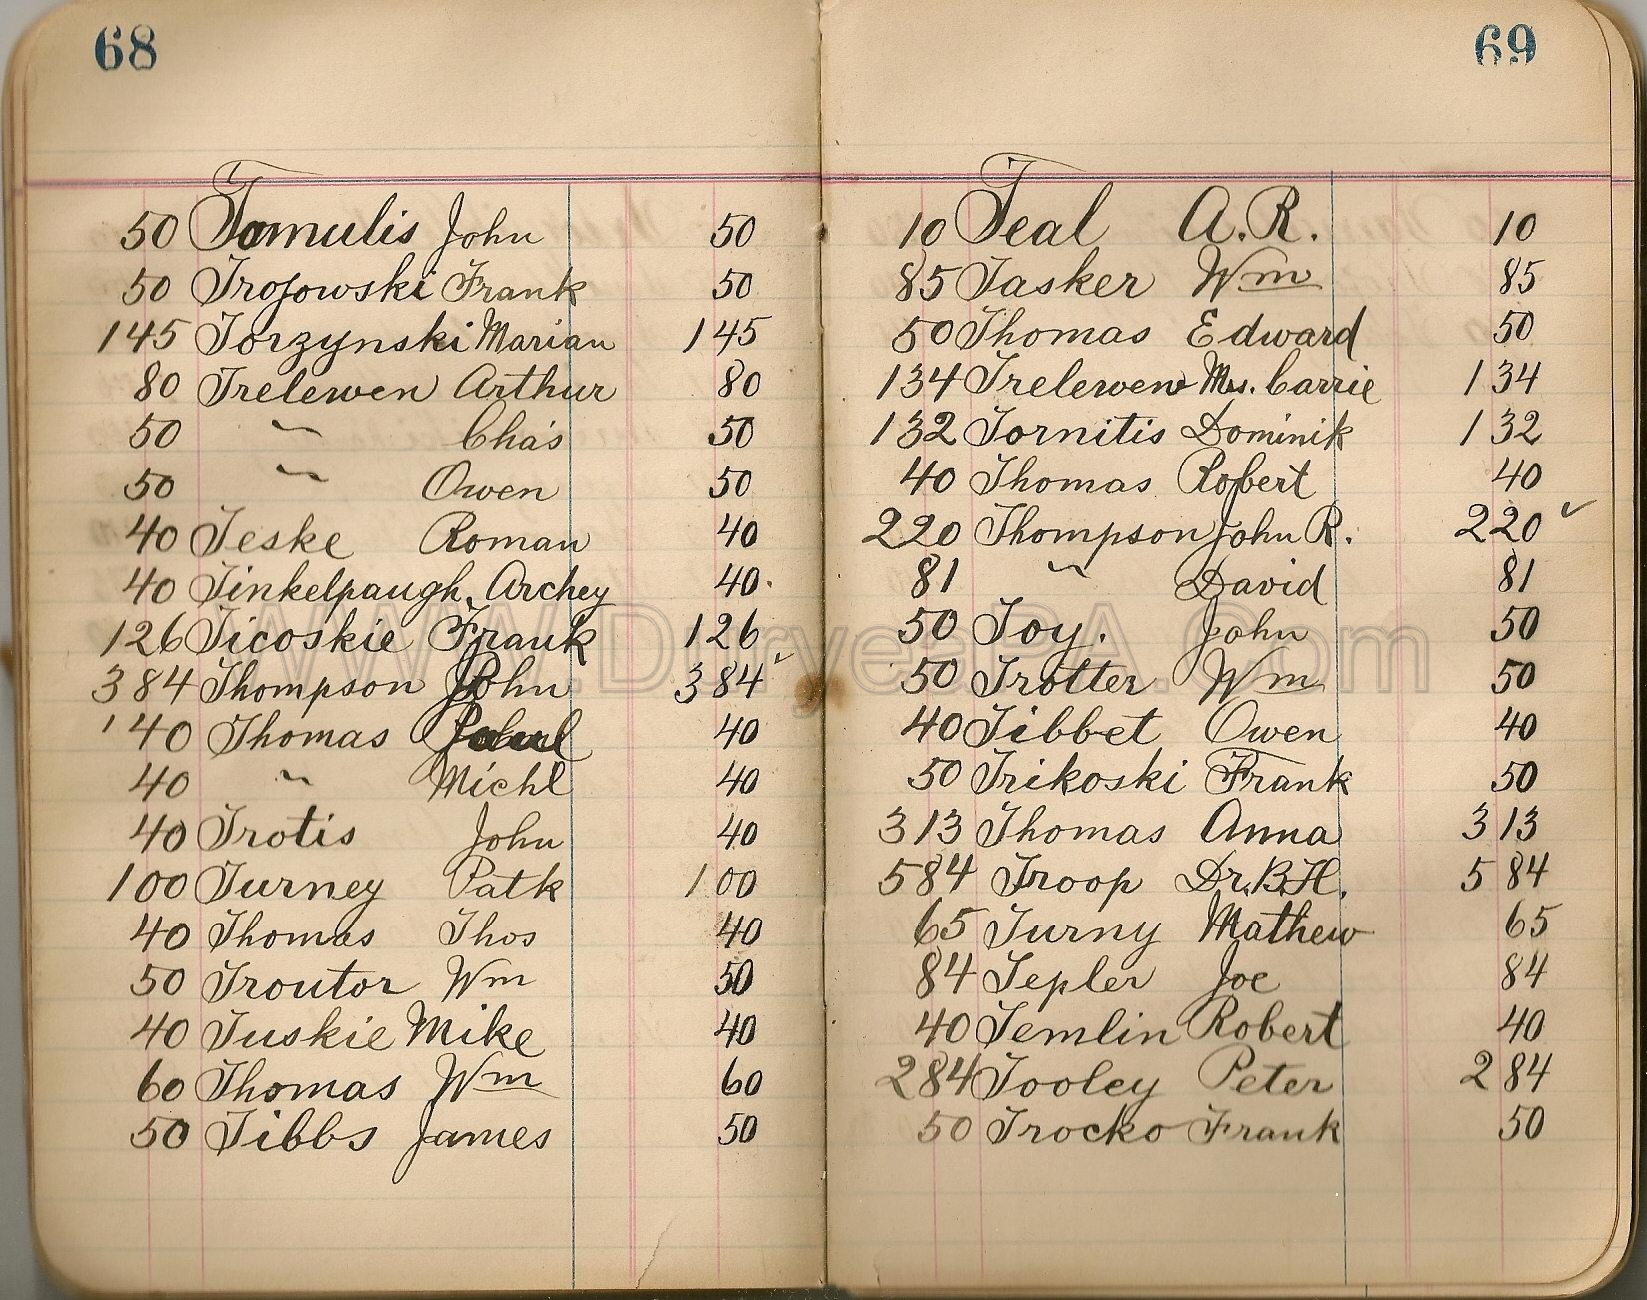 68
50 Tamulis John 50
50 Trojowski Frank 50
145 Torzynski Marian 145
80 Trelewen Arthur 80
50 " Chas 50
50 " Owen 50
40 Teske Roman 40
40 Tinkelpaugh, Archey 40.
126 Ticoskie Frank 126
384 Thompson John 384 ✓
'40 Thomas 40
40 " Michl 40
40 Trotis John 40
100 Turney Patk 100
40 Thomas Thos 40
50 Troutor Wm 50
40 Tuskie Mike 40
60 Thomas Wm 60
50 Tibbs James 50
69
10 Teal A.R. 10
85 Tasker Wm 85
50 Thomas Edward 50
134 Trelewen Mrs. Carrie 134
132 Tornitis Dominik 132
40 Thomas Robert 40
220 Thompson John R. 220 ✓
81 " David 81
50 Toy. John 50
50 Trotter Wm 50
40 Tibbet Owen 40
50 Trikoski Frank 50
313 Thomas Anna 313
584 Troop Dr. B.H. 584
65 Turny Mathew 65
84 Tepler Joe 84
40 Temlin Robert 40
284 Tooley Peter 284
50 Trocko Frank 50
www.DuryeaPA.com